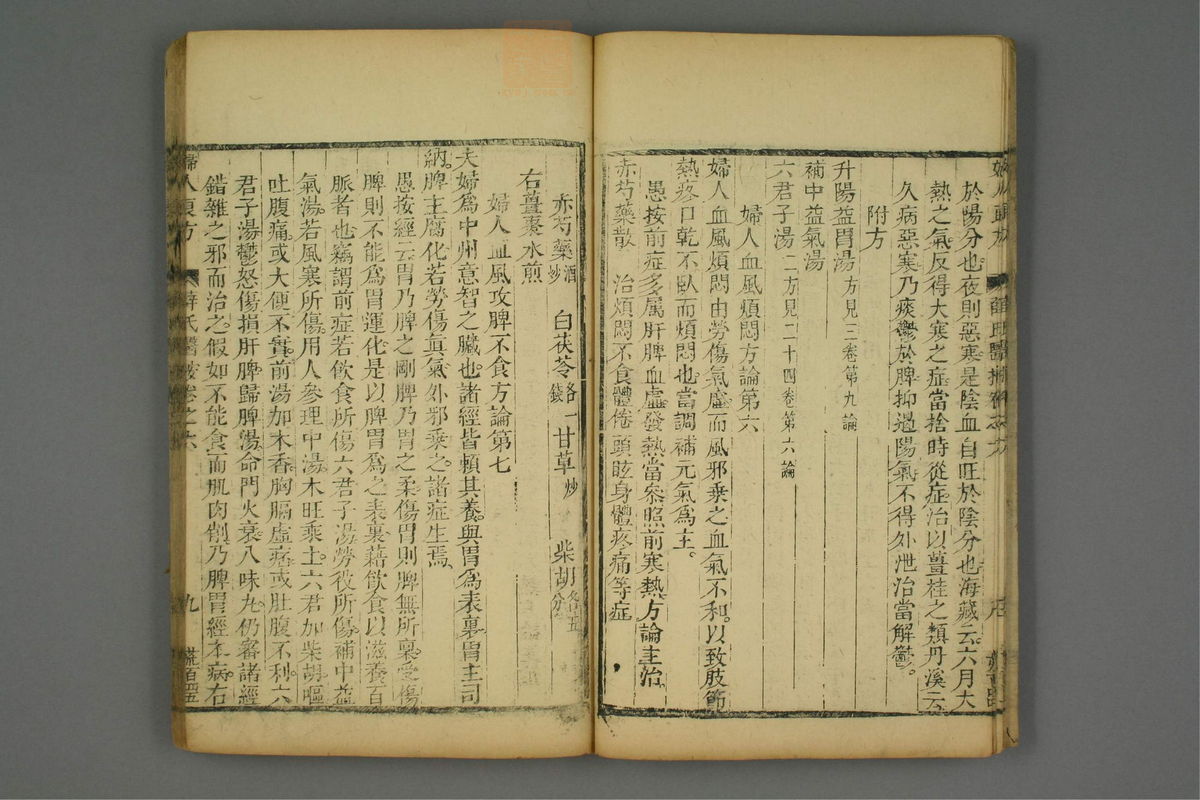 於陽分也夜則惡寒是陰血自旺於陰分也海藏云六月大
熱之氣反得大寒之症當捨時從症治以薑桂之類丹溪云
久病惡寒乃痰鬱於脾抑遏陽氣不得外泄治當解鬱。
附方
升陽益胃湯 方見三卷第九論
補中益氣湯
六君子湯 二方見二十四卷第六論
婦人血風煩悶方論第六
婦人血風煩悶由勞傷氣虛而風邪乘之血氣不利。以致肢節
熱疼口乾不臥而煩悶也當調補元氣為主。
愚按前症多屬肝脾血虛發熱當參照前寒熱方論主治
赤芍藥散 治煩悶不食體倦頭眩身體疼痛等症
赤芍藥 酒炒 白茯苓 各一錢 甘草 炒 柴胡 各五分
右薑棗水煎
婦人血風攻脾不食方論第七
夫脾為中州意智之臟也諸經皆賴其養與胃為表裏胃主司
納。脾主腐化若勞傷真氣外邪乘之諸症生焉
愚按經云胃乃脾之剛脾乃胃之柔傷胃則脾無所稟受傷
脾則不能為胃運化是以脾胃為之表裏藉飲食以滋養百
脈者也竊謂前症若飲食所傷六君子湯勞役所傷。補中益
氣湯。若風寒所傷。用人參理中湯。木旺乘土。六君加柴胡嘔
吐腹痛或大便不實。前湯加木香胸膈虛痞或肚腹不利。六
君子湯鬱怒傷損肝脾歸脾湯。命門火衰八味丸仍審諸經
錯雜之邪而治之。假如不能食而肌肉削。乃脾胃經本病。右
婦人良方 薛氏醫按卷之六 九